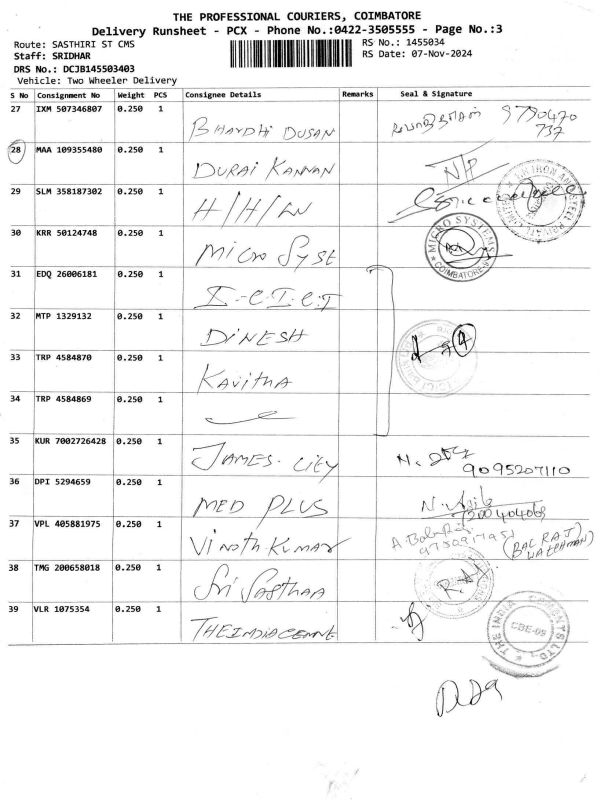 THE PROFESSIONAL COURIERS, COIMBATORE
Delivery Runsheet - PCX - Phone No.:0422-3505555 - Page No.:3
Route: SASTHIRI ST CMS RS No.: 1455034
Staff: SRIDHAR RS Date: 07-Nov-2024
DRS No.: DCJB145503403
Vehicle: Two Wheeler Delivery
S No Consignment No Weight PCS Consignee Details Remarks Seal & Signature
27 IXM 507346807 0.250 1
BHARDHI DUSAN
28 MAA 109355480 0.250 1
DURAI KANNAN N/P
29 SLM 358187302 0.250 1
H/H/LN
30 KRR 50124748 0.250 1
MICRO SYST MICRO SYSTEMS COIMBATORE
31 EDQ 26006181 0.250 1
I-C-I-C-I
32 MTP 1329132 0.250 1
DINESH
33 TRP 4584870 0.250 1
KAVITHA
34 TRP 4584869 0.250 1
35 KUR 7002726428 0.250 1
JAMES 9095207110
36 DPI 5294659 0.250 1
MED PLUS
37 VPL 405881975 0.250 1
VINOTH KUMAR (BALRAJ WATCHMAN)
38 TMG 200658018 0.250 1
Sri Sasthaa
39 VLR 1075354 0.250 1
THEINDIACEMNE THE INDIA CEMENTS LTD. CBE-09